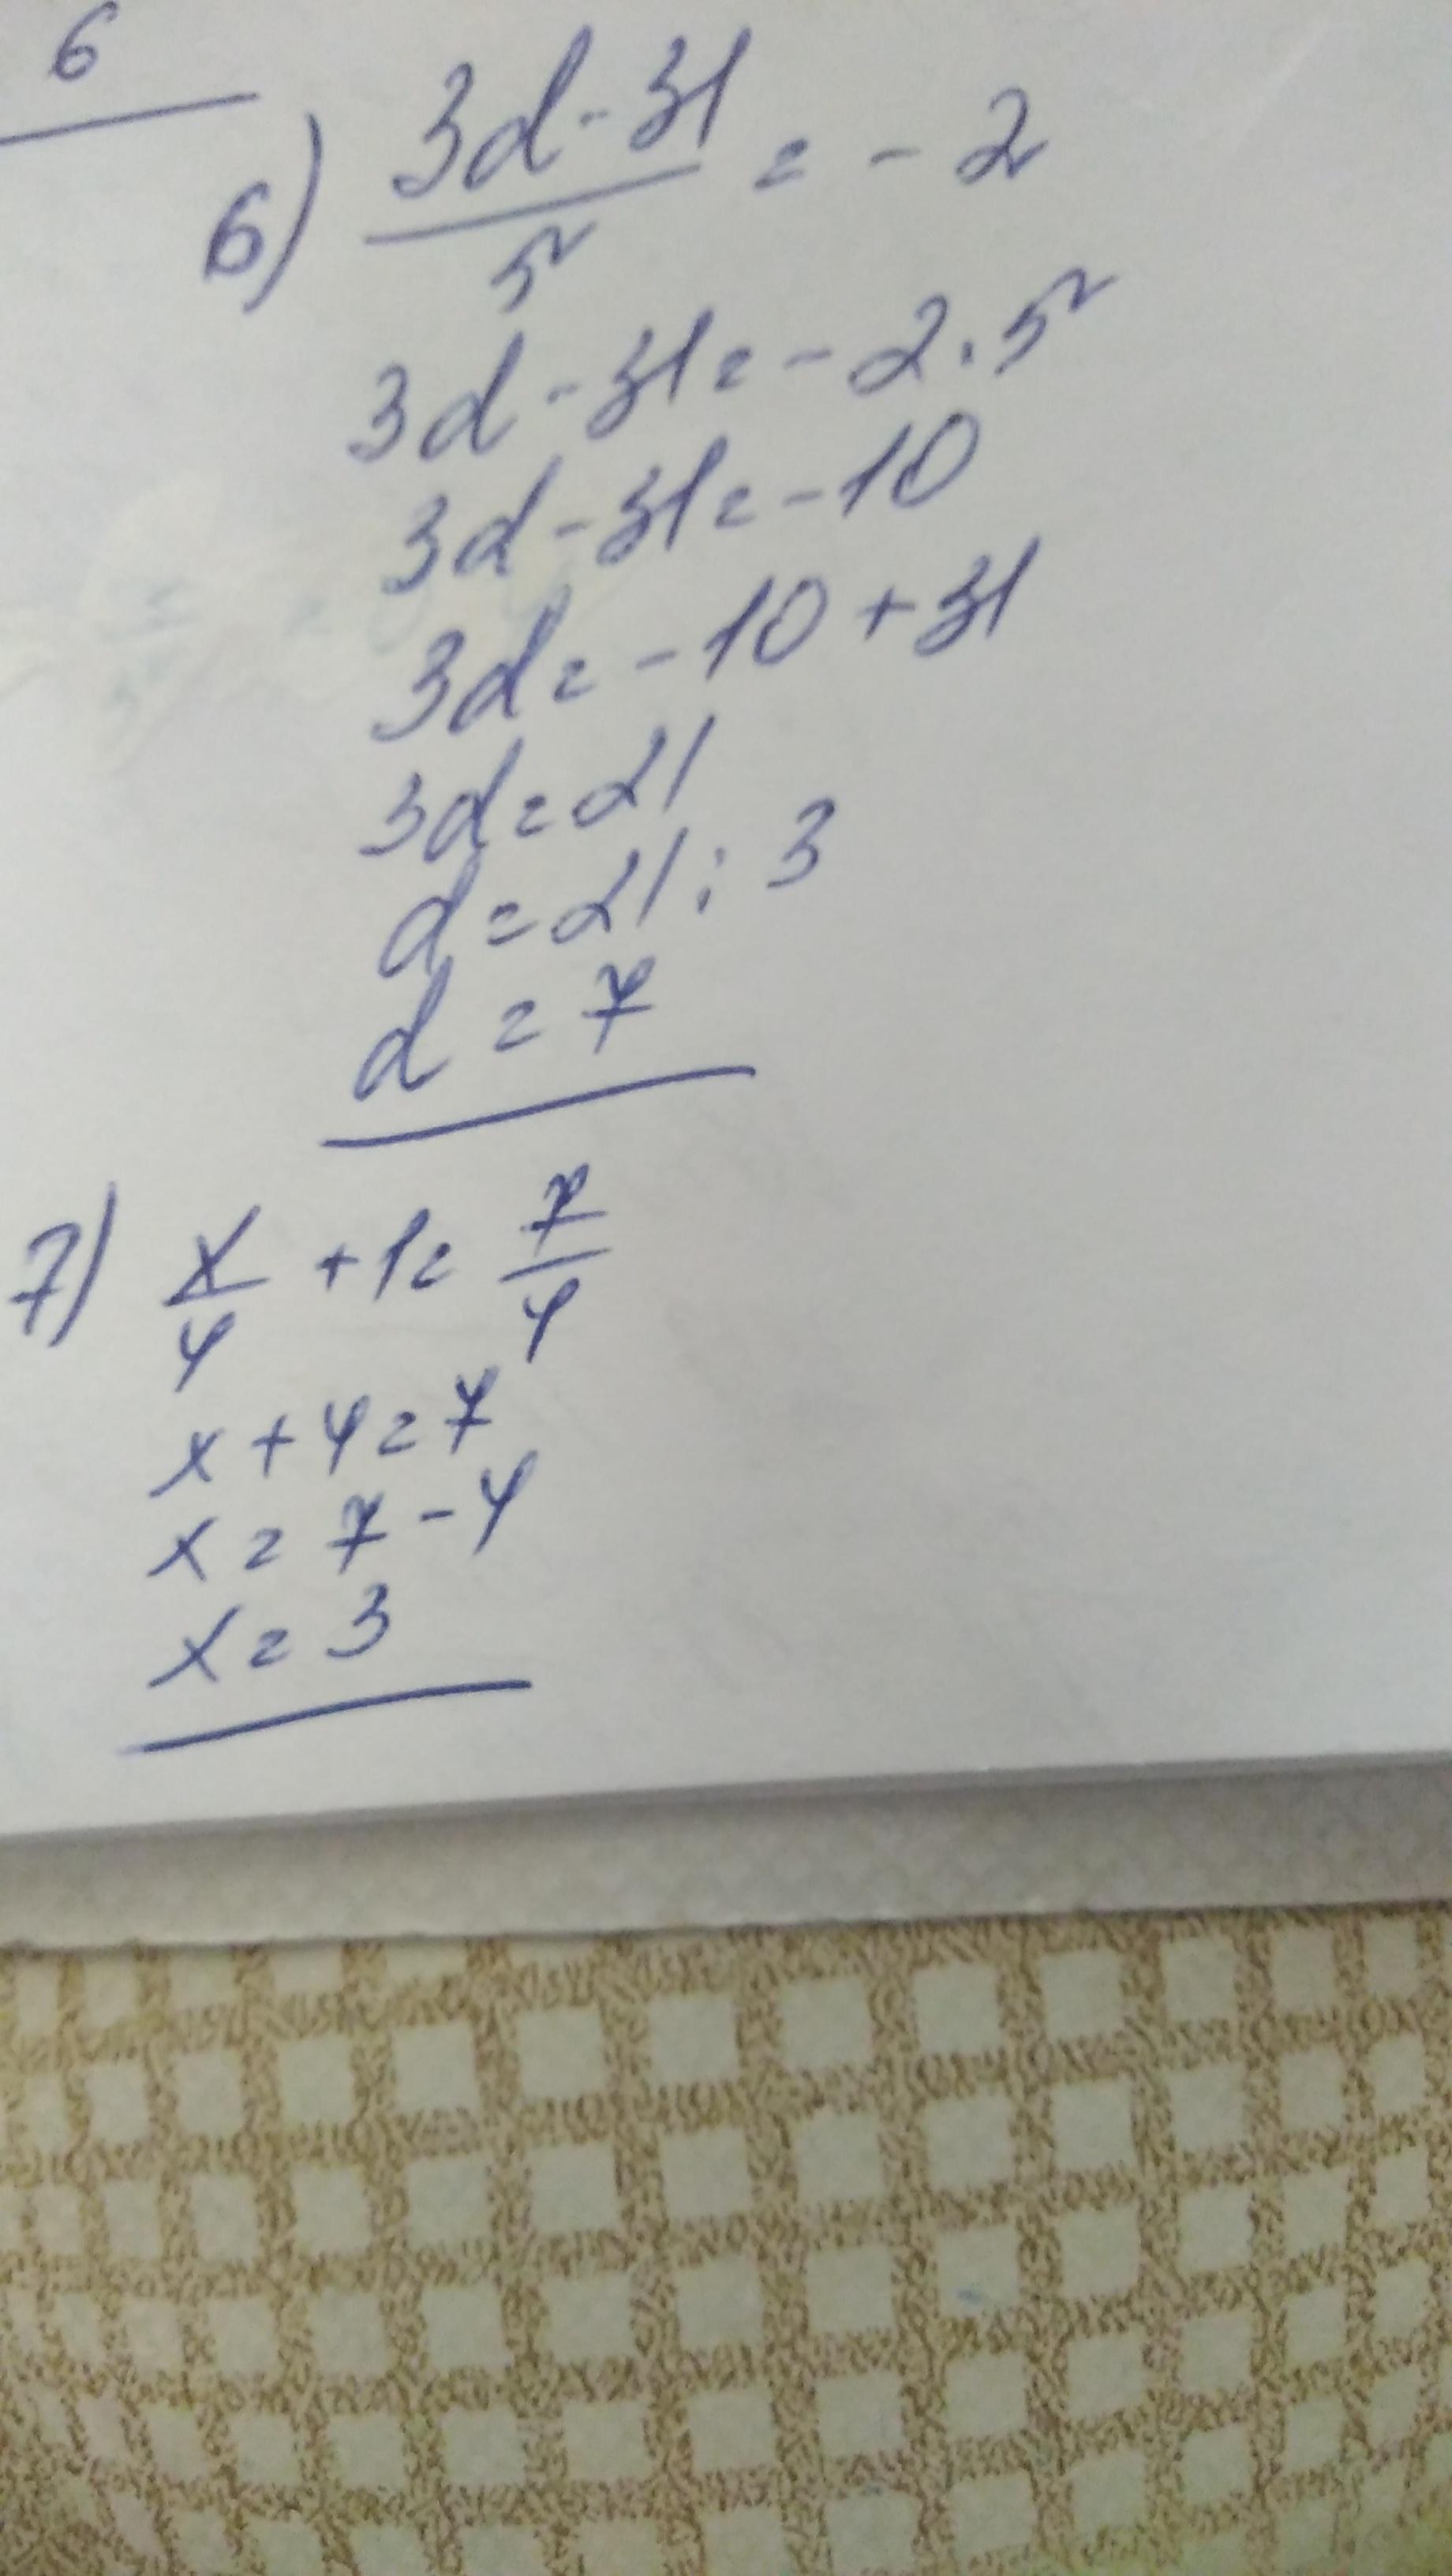 6
6) (3d - 31)/5 = - 2
3d - 31 = - 2 · 5
3d - 31 = - 10
3d = - 10 + 31
3d = 21
d = 21 : 3
d = 7
7) x/4 + 1 = 7/4
x + 4 = 7
x = 7 - 4
x = 3